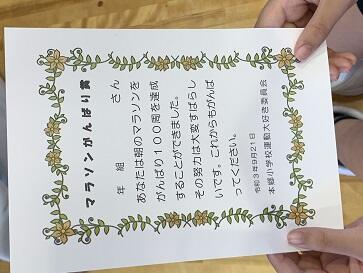 マラソンがんばり賞
年　組　　　さん
あなたは朝のマラソンを
がんばり１００周を達成
することができました。
その努力は大変すばらし
いです。これからもがんば
ってください。
令和３年９月２１日
本郷小学校運動大好き委員会